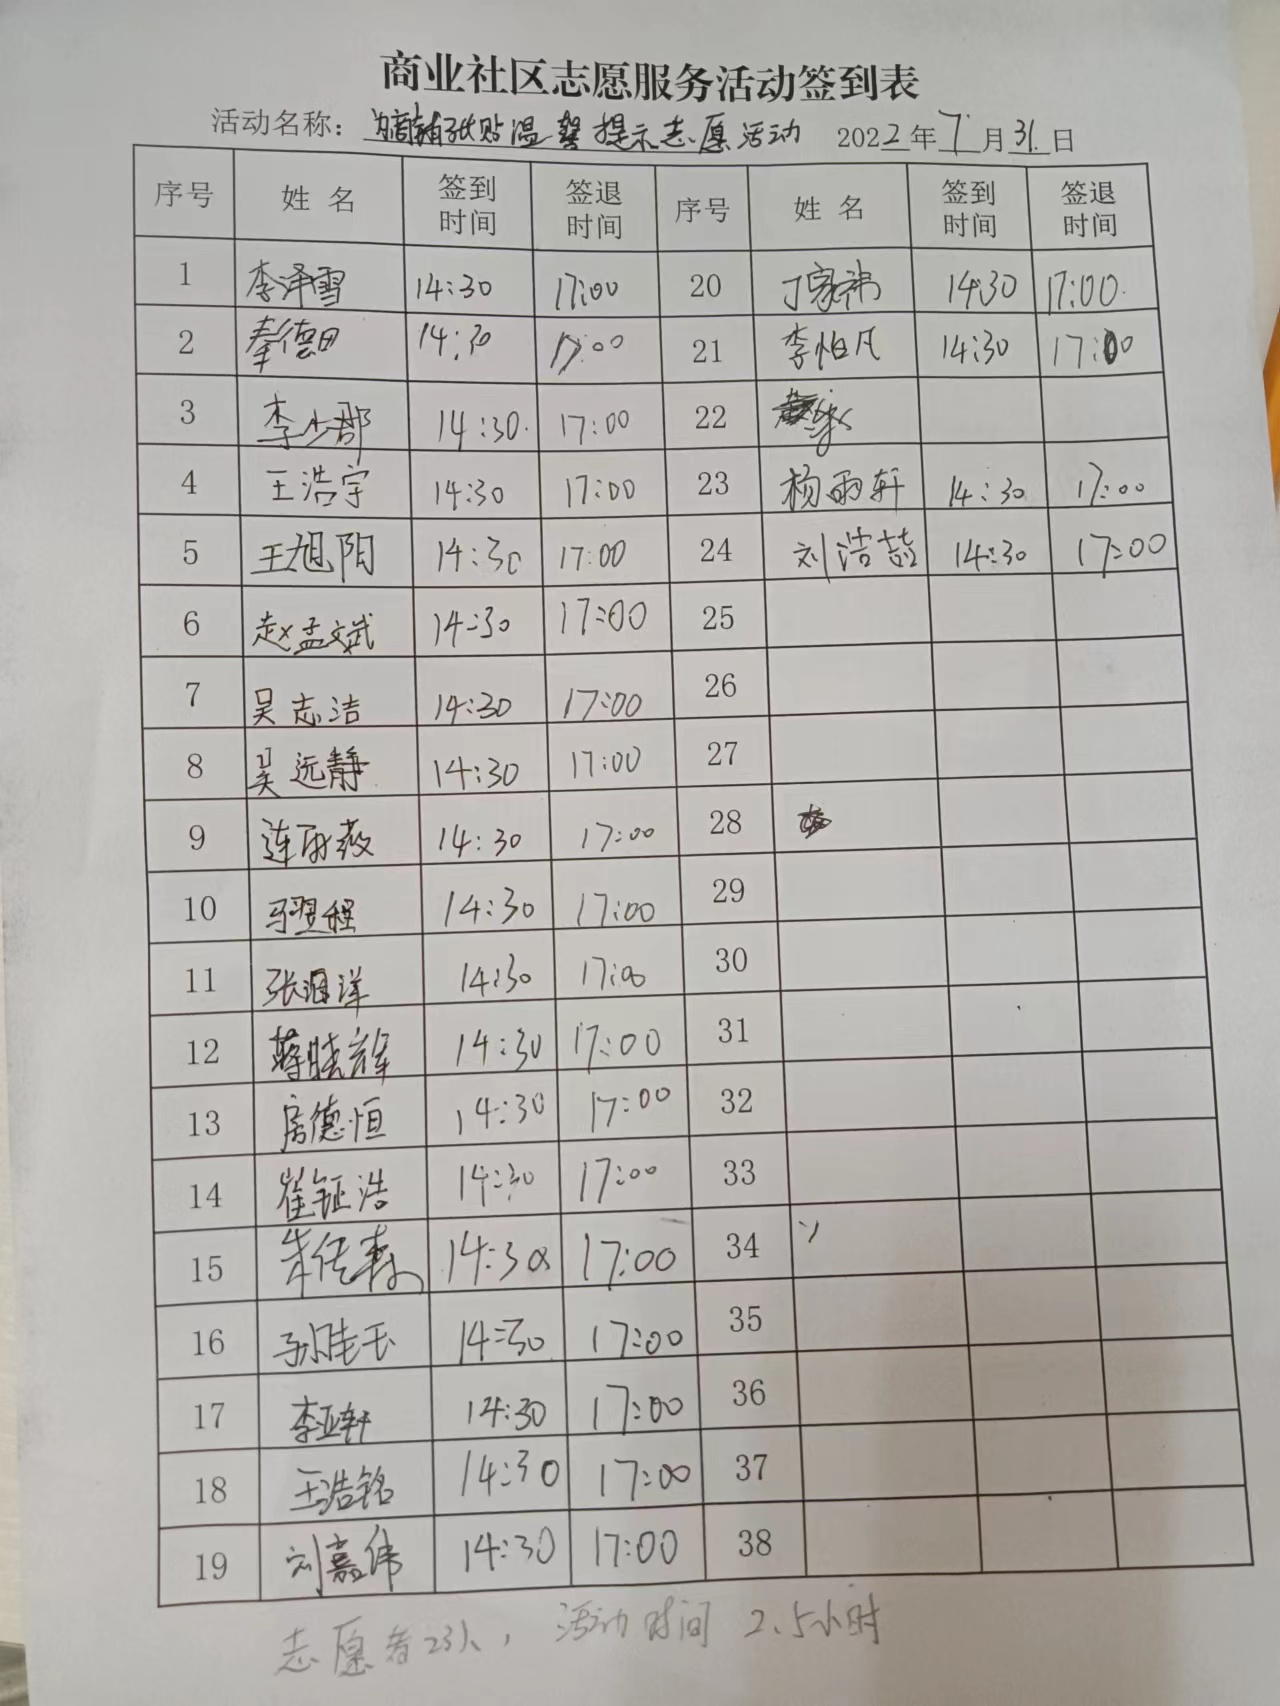 商业社区志愿服务活动签到表
活动名称：为商铺张贴温馨提示志愿活动 2022年7月31日
序号 姓名 签到时间 签退时间 序号 姓名 签到时间 签退时间
1 李泽雪 14:30 17:00 20 丁家祎 14:30 17:00
2 秦德田 14:30 17:00 21 李怡凡 14:30 17:00
3 李少郡 14:30 17:00 22
4 王浩宇 14:30 17:00 23 杨雨轩 14:30 17:00
5 王旭阳 14:30 17:00 24 刘浩喆 14:30 17:00
6 赵孟文斌 14:30 17:00 25
7 吴志洁 14:30 17:00 26
8 吴远静 14:30 17:00 27
9 连 14:30 17:00 28
10 马翌程 14:30 17:00 29
11 张海洋 14:30 17:00 30
12 蒋晓 14:30 17:00 31
13 房德恒 14:30 17:00 32
14 崔钲浩 14:30 17:00 33
15 朱传森 14:30 17:00 34
16 孙佳玉 14:30 17:00 35
17 李亚轩 14:30 17:00 36
18 王浩铭 14:30 17:00 37
19 刘嘉伟 14:30 17:00 38
志愿者23人，活动时间 2.5小时